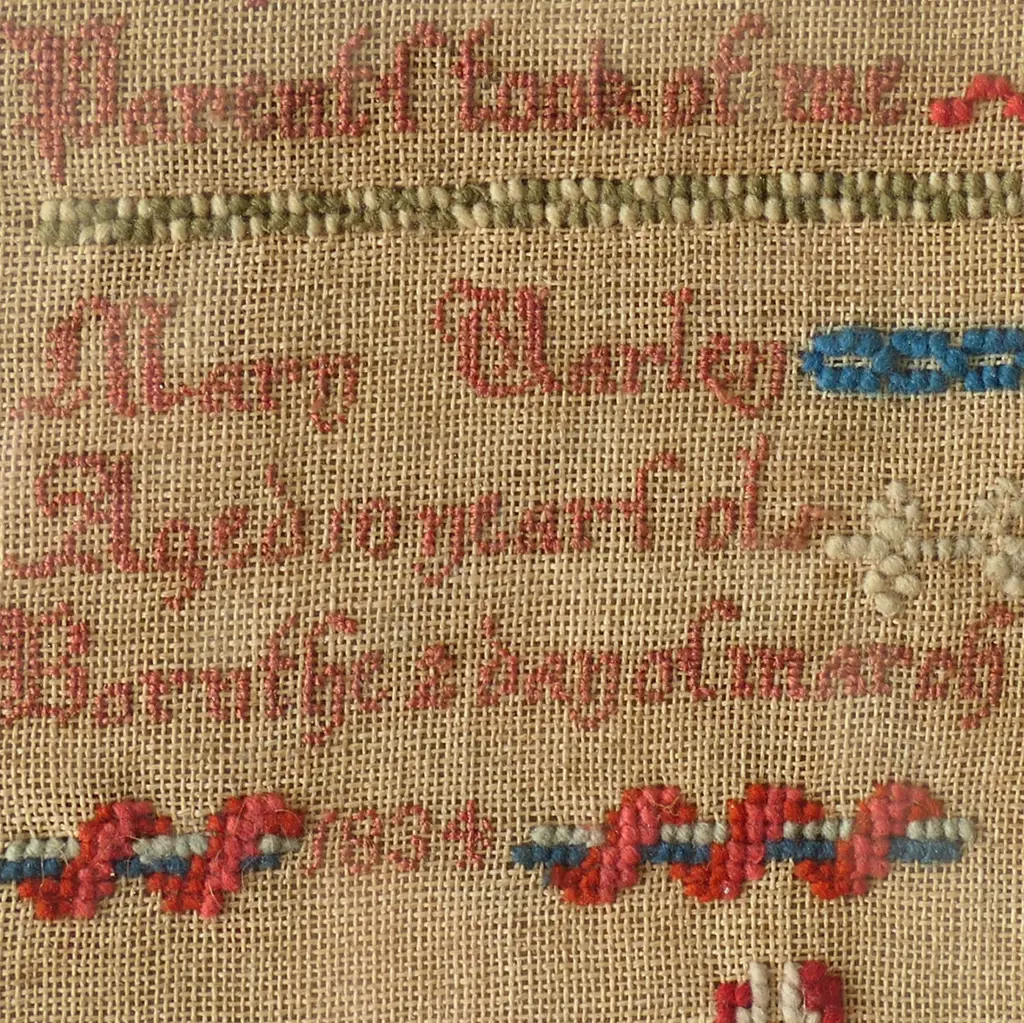 Parents took of me
Mary Varley
Aged 10 years old
Born the 2 day of march
1834